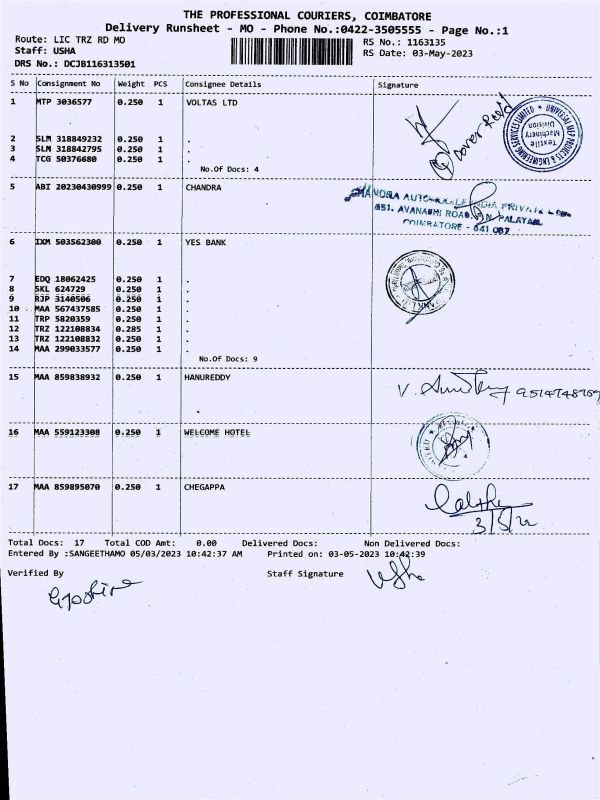 THE PROFESSIONAL COURIERS, COIMBATORE
Delivery Runsheet - MO - Phone No.:0422-3505555 - Page No.:1
Route: LIC TRZ RD MO
RS No.: 1163135
Staff: USHA
RS Date: 03-May-2023
DRS No.: DCJB116313501
S No Consignment No Weight PCS Consignee Details Signature
1 MTP 3036577 0.250 1 VOLTAS LTD
UNIVERSAL MEP PROJECTS & ENGINEERING SERVICES LIMITED
Textile Machinery Division
2 SLM 318849232 0.250 1 .
3 SLM 318842795 0.250 1 .
4 TCG 50376680 0.250 1 .
No.Of Docs: 4
5 ABI 20230430999 0.250 1 CHANDRA
651, AVANASHI ROAD, P.N. PALAYAM,
COIMBATORE - 641 037
6 IXM 503562300 0.250 1 YES BANK
7 EDQ 18062425 0.250 1 .
8 SKL 624729 0.250 1 .
9 RJP 3140506 0.250 1 .
10 MAA 567437585 0.250 1 .
11 TRP 5820359 0.250 1 .
12 TRZ 122108834 0.285 1 .
13 TRZ 122108832 0.250 1 .
14 MAA 299033577 0.250 1 .
No.Of Docs: 9
15 MAA 859838932 0.250 1 HANUREDDY
16 MAA 559123308 0.250 1 WELCOME HOTEL
17 MAA 859895070 0.250 1 CHEGAPPA
Total Docs: 17 Total COD Amt: 0.00 Delivered Docs: Non Delivered Docs:
Entered By :SANGEETHAMO 05/03/2023 10:42:37 AM Printed on: 03-05-2023 10:42:39
Verified By Staff Signature
Usha